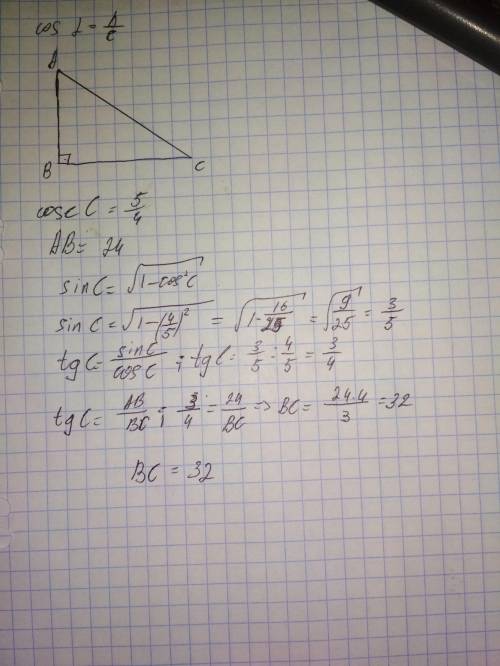 cos α = A/c
A
B
C
cosec C = 5/4
AB = 24
sin C = √(1-cos²C)
sin C = √(1-(4/5)²) = √(1-16/25) = √(9/25) = 3/5
tg C = sin C/cos C ; tg C = 3/5 : 4/5 = 3/4
tg C = AB/BC ; 3/4 = 24/BC => BC = 24·4/3 = 32
BC = 32